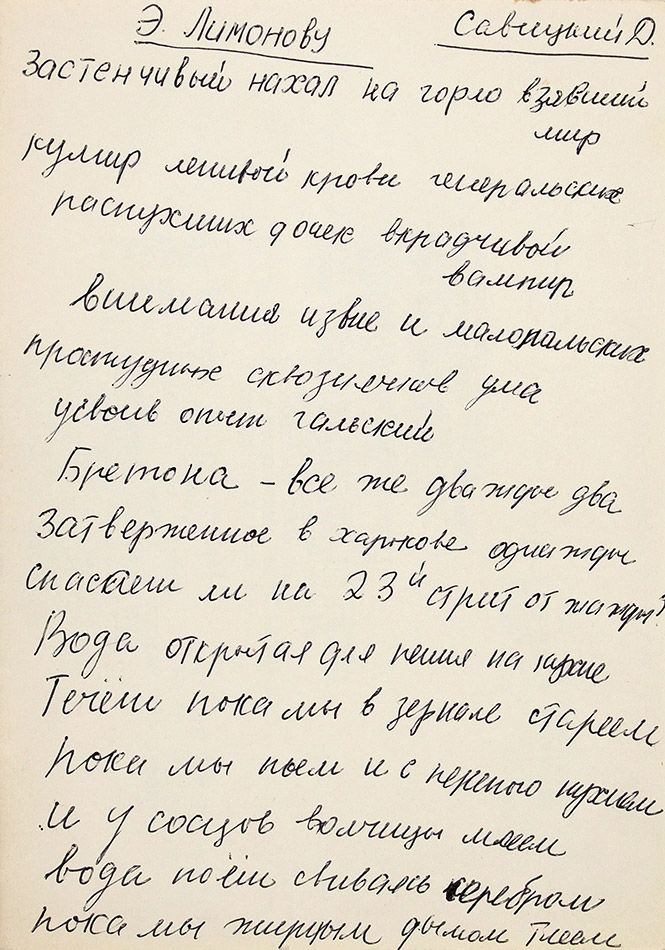 Э. Лимонову Савицкий Д.
Застенчивый нахал на горло взявший
мир
кумир ленивой крови генеральских
распухших дочек вкрадчивой
вампир
внимания извне и малопальских
простудных сквознячков ума
усвоив опыт гальский
Бретона – все же дважды два
Затверженное в харькове однажды
спасает ли на 23й стрит от жажды?
Вода открытая для пения на кухне
Течёт пока мы в зеркале стареем
пока мы пьем и с перепою пухнем
и у сосцов волчицы млеем
вода поёт свиваясь серебром
пока мы жирным дымом тлеем